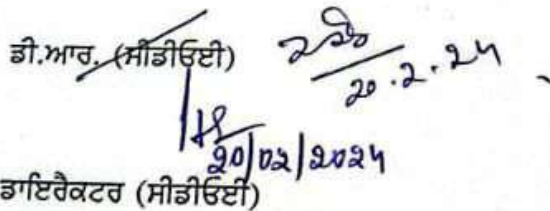 ਡੀ.ਆਰ. (ਸੀਡੀਓਈ)
20.2.24
20/02/2024
ਡਾਇਰੈਕਟਰ (ਸੀਡੀਓਈ)